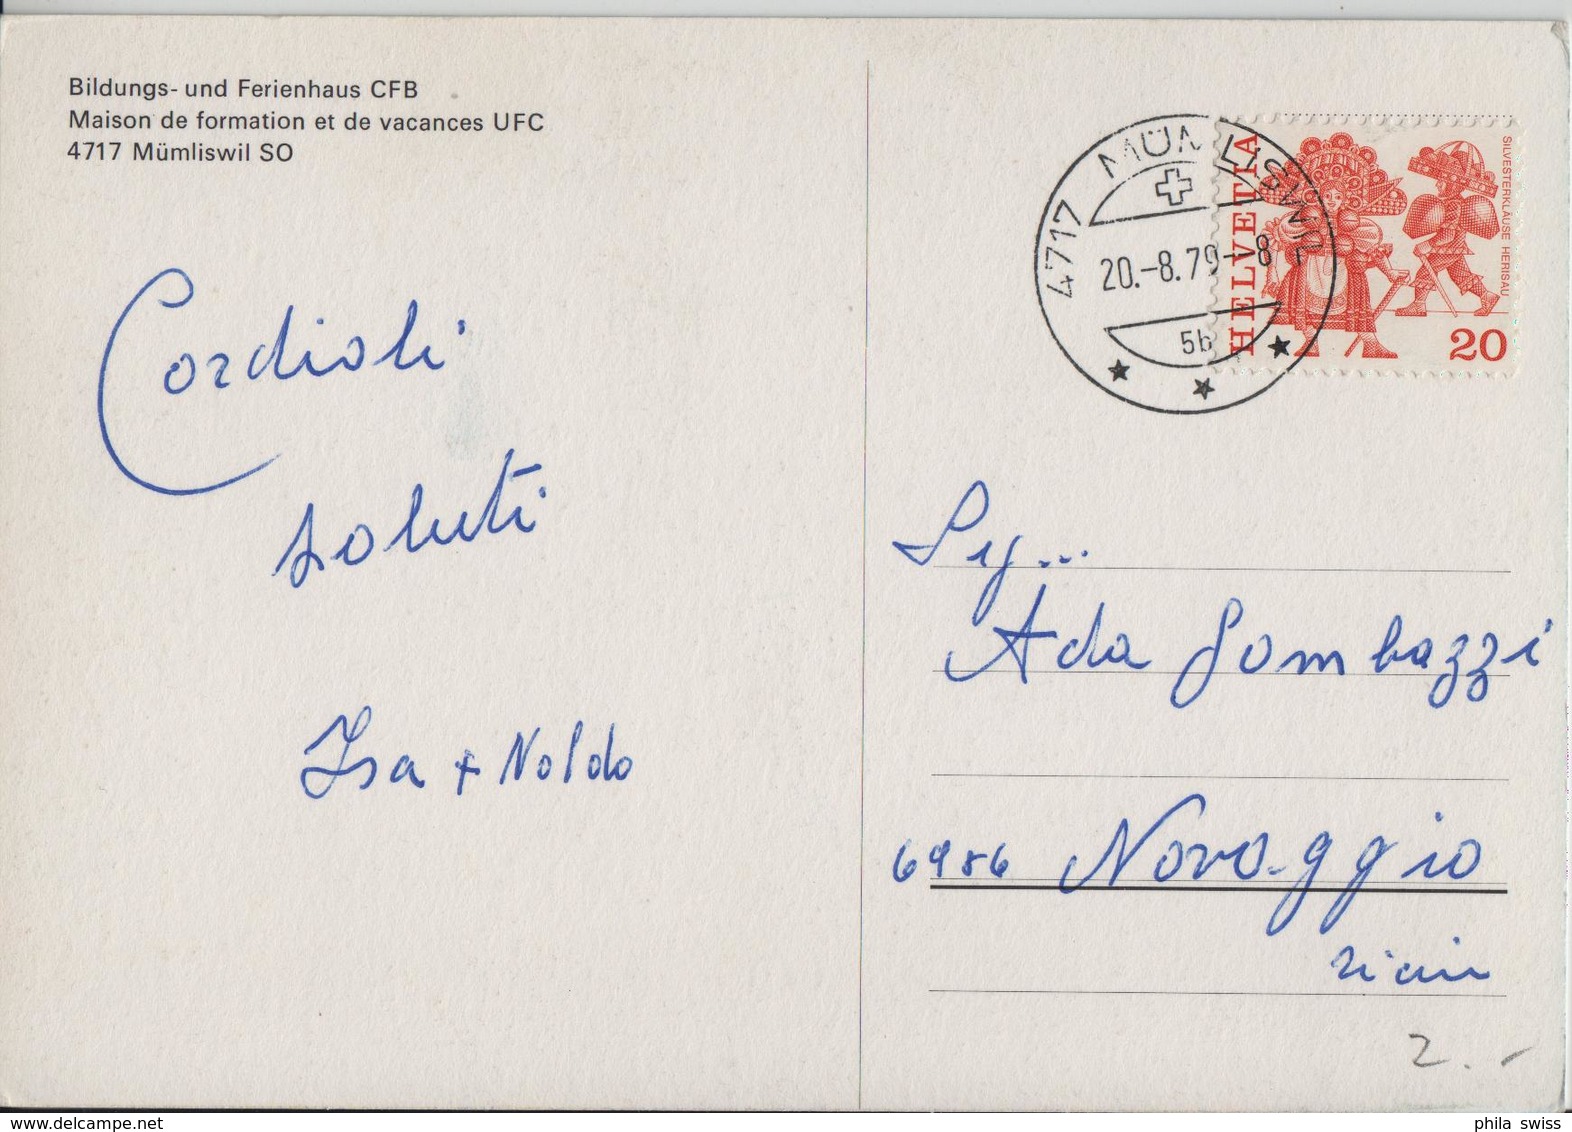 Bildungs- und Ferienhaus CFB
Maison de formation et de vacances UFC
4717 Mümliswil SO
Cordiali
saluti
Isa + Noldo
4717 MÜMLISWIL
20.-8.79--8
5b
HELVETIA
SILVESTERKLÄUSE HERISAU
20
Sig...
Ada Gombazzi
6986 Novaggio
2.-
phila swiss